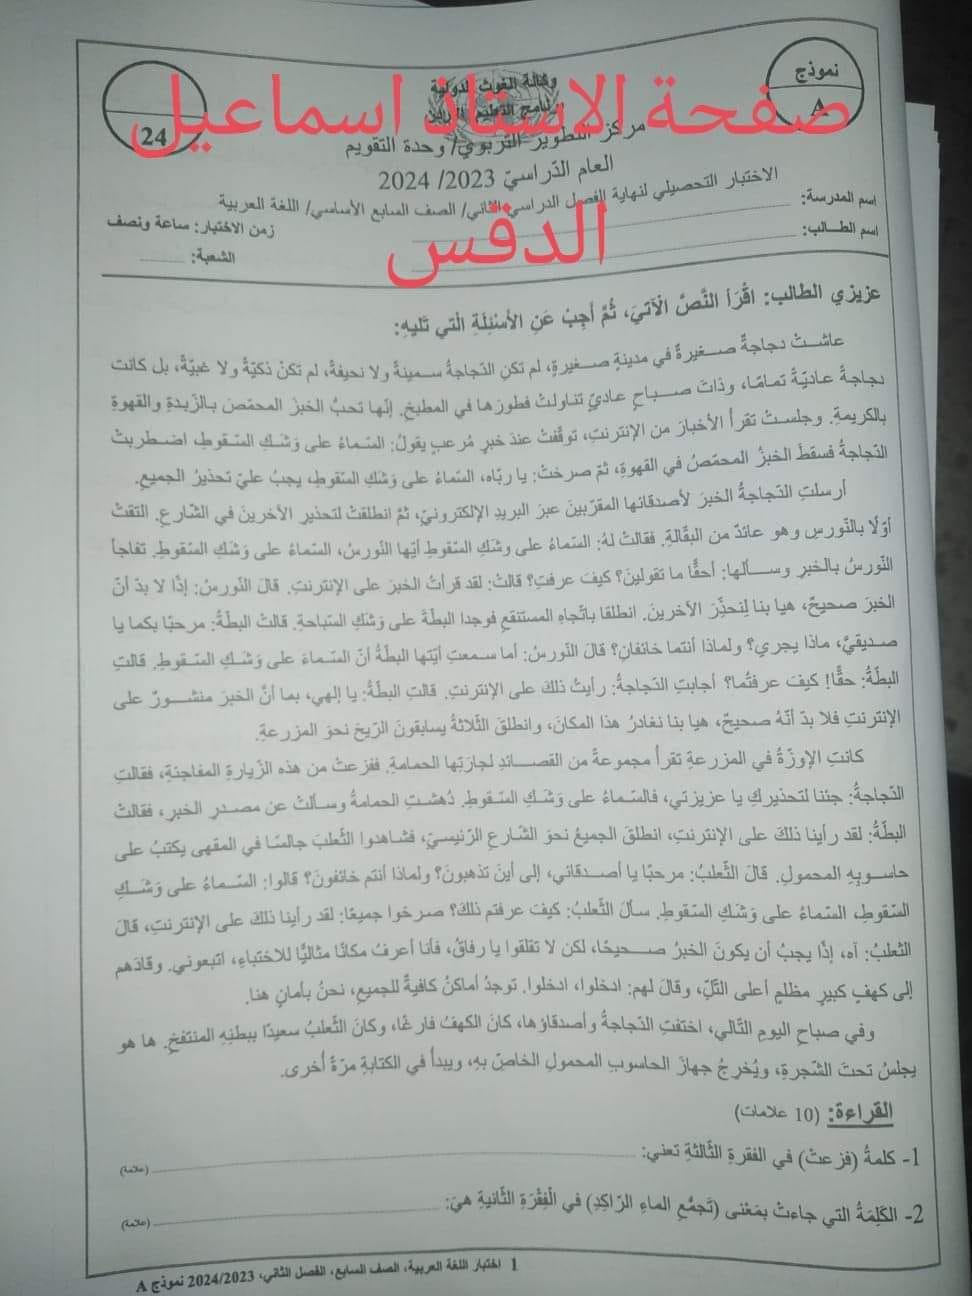 نموذج
A
24
وكالة الغوث الدولية
برنامج التعليم
صفحة الاستاذ اسماعيل
الدقس
مركز التطوير التربوي/ وحدة التقويم
العام الدّراسيّ 2023/ 2024
الاختبار التحصيلي لنهاية الفصل الدراسي الثاني/ الصف السابع الأساسي/ اللغة العربية
اسم المدرسة:
زمن الاختبار: ساعة ونصف
اسم الطالب:
الشعبة:
عزيزي الطالب: اقْرَأ النَّصَّ الْآتيَ، ثُمَّ أَجِبْ عَنِ الأَسْئِلَةِ الْتي تَليهِ:
عاشتْ دجاجةٌ صغيرةٌ في مدينةٍ صغيرةٍ، لم تكنِ الدّجاجةُ سمينةً ولا نحيفةً، لم تكنْ ذكيّةً ولا غبيّةً، بل كانت
دجاجةً عاديّةً تمامًا، وذاتَ صباحٍ عاديّ تناولتْ فطورَها في المطبخِ. إنّها تحبُّ الخبزَ المحمّصَ بالزّبدةِ والقهوةِ
بالكريمةِ. وجلستْ تقرأُ الأخبارَ من الإنترنتِ، توقّفتْ عندَ خبرٍ مُرعبٍ يقولُ: السّماءُ على وَشَكِ السّقوطِ، اضطربتْ
الدّجاجةُ فسقطَ الخبزُ المحمّصُ في القهوةِ، ثمّ صرختْ: يا ربّاه، السّماءُ على وَشَكِ السّقوطِ، يجبُ عليّ تحذيرُ الجميعِ.
أرسلتِ الدّجاجةُ الخبرَ لأصدقائها المقرّبينَ عبرَ البريدِ الإلكترونيّ، ثمّ انطلقتْ لتحذيرِ الآخرينَ في الشّارعِ. التقتْ
أوّلًا بالنّورسِ وهو عائدٌ من البقّالةِ. فقالتْ لهُ: السّماءُ على وشكِ السّقوطِ أيّها النّورسُ، السّماءُ على وَشَكِ السّقوطِ. تفاجأَ
النّورسُ بالخبرِ وسألها: أحقًّا ما تقولينَ؟ كيفَ عرفتِ؟ قالتْ: لقد قرأتُ الخبرَ على الإنترنتِ. قالَ النّورسُ: إذًا لا بدّ أنّ
الخبرَ صحيحٌ، هيا بنا لِنحذِّرَ الآخرينَ. انطلقا باتّجاهِ المستنقعِ فوجدا البطّةَ على وَشَكِ السّباحةِ. قالتْ البطّةُ: مرحبًا بكما يا
صديقيَّ، ماذا يجري؟ ولماذا أنتما خائفانِ؟ قالَ النّورسُ: أما سمعتِ أيّتها البطّةُ أنّ السّماءَ على وَشَكِ السّقوطِ. قالتِ
البطّةُ: حقًّا! كيفَ عرفتُما؟ أجابتِ الدّجاجةُ: رأيتُ ذلكَ على الإنترنتِ. قالتِ البطّةُ: يا إلهي، بما أنَّ الخبرَ منشورٌ على
الإنترنتِ فلا بدّ أنّهُ صحيحٌ، هيا بنا نغادرُ هذا المكانَ، وانطلقَ الثّلاثةُ يسابقونَ الرّيحَ نحوَ المزرعةِ.
كانتِ الإوزّةُ في المزرعةِ تقرأُ مجموعةً من القصائدِ لجارَتِها الحمامةِ. ففزعتْ من هذه الزّيارةِ المفاجئةِ، فقالتِ
الدّجاجةُ: جئنا لتحذيركِ يا عزيزتي، فالسّماءُ على وَشَكِ السّقوطِ. دُهشتِ الحمامةُ وسألتْ عن مصدرِ الخبرِ، فقالتْ
البطّةُ: لقد رأينا ذلكَ على الإنترنتِ، انطلقَ الجميعُ نحوَ الشّارعِ الرّئيسيّ، فشاهدوا الثّعلبَ جالسًا في المقهى يكتبُ على
حاسوبِهِ المحمولِ. قالَ الثّعلبُ: مرحبًا يا أصدقائي، إلى أينَ تذهبونَ؟ ولماذا أنتم خائفونَ؟ قالوا: السّماءُ على وَشَكِ
السّقوطِ، السّماءُ على وَشَكِ السّقوطِ. سألَ الثّعلبُ: كيفَ عرفتم ذلكَ؟ صرخوا جميعًا: لقد رأينا ذلكَ على الإنترنتِ، قالَ
الثعلبُ: آه، إذًا يجبُ أن يكونَ الخبرُ صحيحًا، لكن لا تقلقوا يا رفاقُ، فأنا أعرفُ مكانًا مثاليًّا للاختباءِ، اتبعوني. وقادَهم
إلى كهفٍ كبيرٍ مظلمٍ أعلى التّلِّ، وقالَ لهم: ادخلوا، ادخلوا. توجدُ أماكنُ كافيةٌ للجميعِ، نحنُ بأمانٍ هنا.
وفي صباحِ اليومِ التّالي، اختفتِ الدّجاجةُ وأصدقاؤها، كانَ الكهفُ فارغًا، وكانَ الثّعلبُ سعيدًا ببطنِهِ المنتفخِ. ها هو
يجلسُ تحتَ الشّجرةِ، ويُخرِجُ جهازَ الحاسوبِ المحمولِ الخاصّ بهِ، ويبدأُ في الكتابةِ مرّةً أُخرى.
القراءة: (10 علامات)
1- كلمةُ (فزعتْ) في الفقرةِ الثّالثةِ تعني: (علامة)
2- الكَلِمَةُ التي جاءتْ بمَعْنى (تَجمُّعِ الماءِ الرّاكِدِ) في الْفِقْرَةِ الثّانيةِ هيَ: (علامة)
1 اختبار اللغة العربية، الصف السابع، الفصل الثاني، 2024/2023 نموذج A